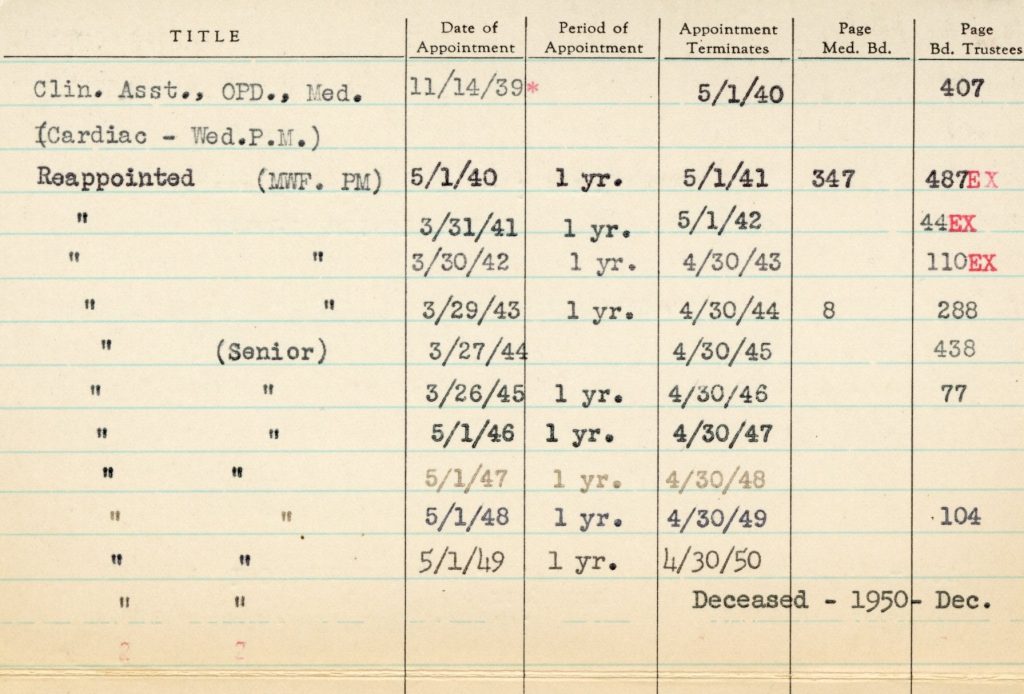 TITLE Date of Appointment Period of Appointment Appointment Terminates Page Med. Bd. Page Bd. Trustees
Clin. Asst., OPD., Med. 11/14/39* 5/1/40 407
(Cardiac - Wed.P.M.)
Reappointed (MWF. PM) 5/1/40 1 yr. 5/1/41 347 487EX
" 3/31/41 1 yr. 5/1/42 44EX
" " 3/30/42 1 yr. 4/30/43 110EX
" " 3/29/43 1 yr. 4/30/44 8 288
" (Senior) 3/27/44 4/30/45 438
" " 3/26/45 1 yr. 4/30/46 77
" " 5/1/46 1 yr. 4/30/47
" " 5/1/47 1 yr. 4/30/48
" " 5/1/48 1 yr. 4/30/49 104
" " 5/1/49 1 yr. 4/30/50
" " Deceased - 1950- Dec.